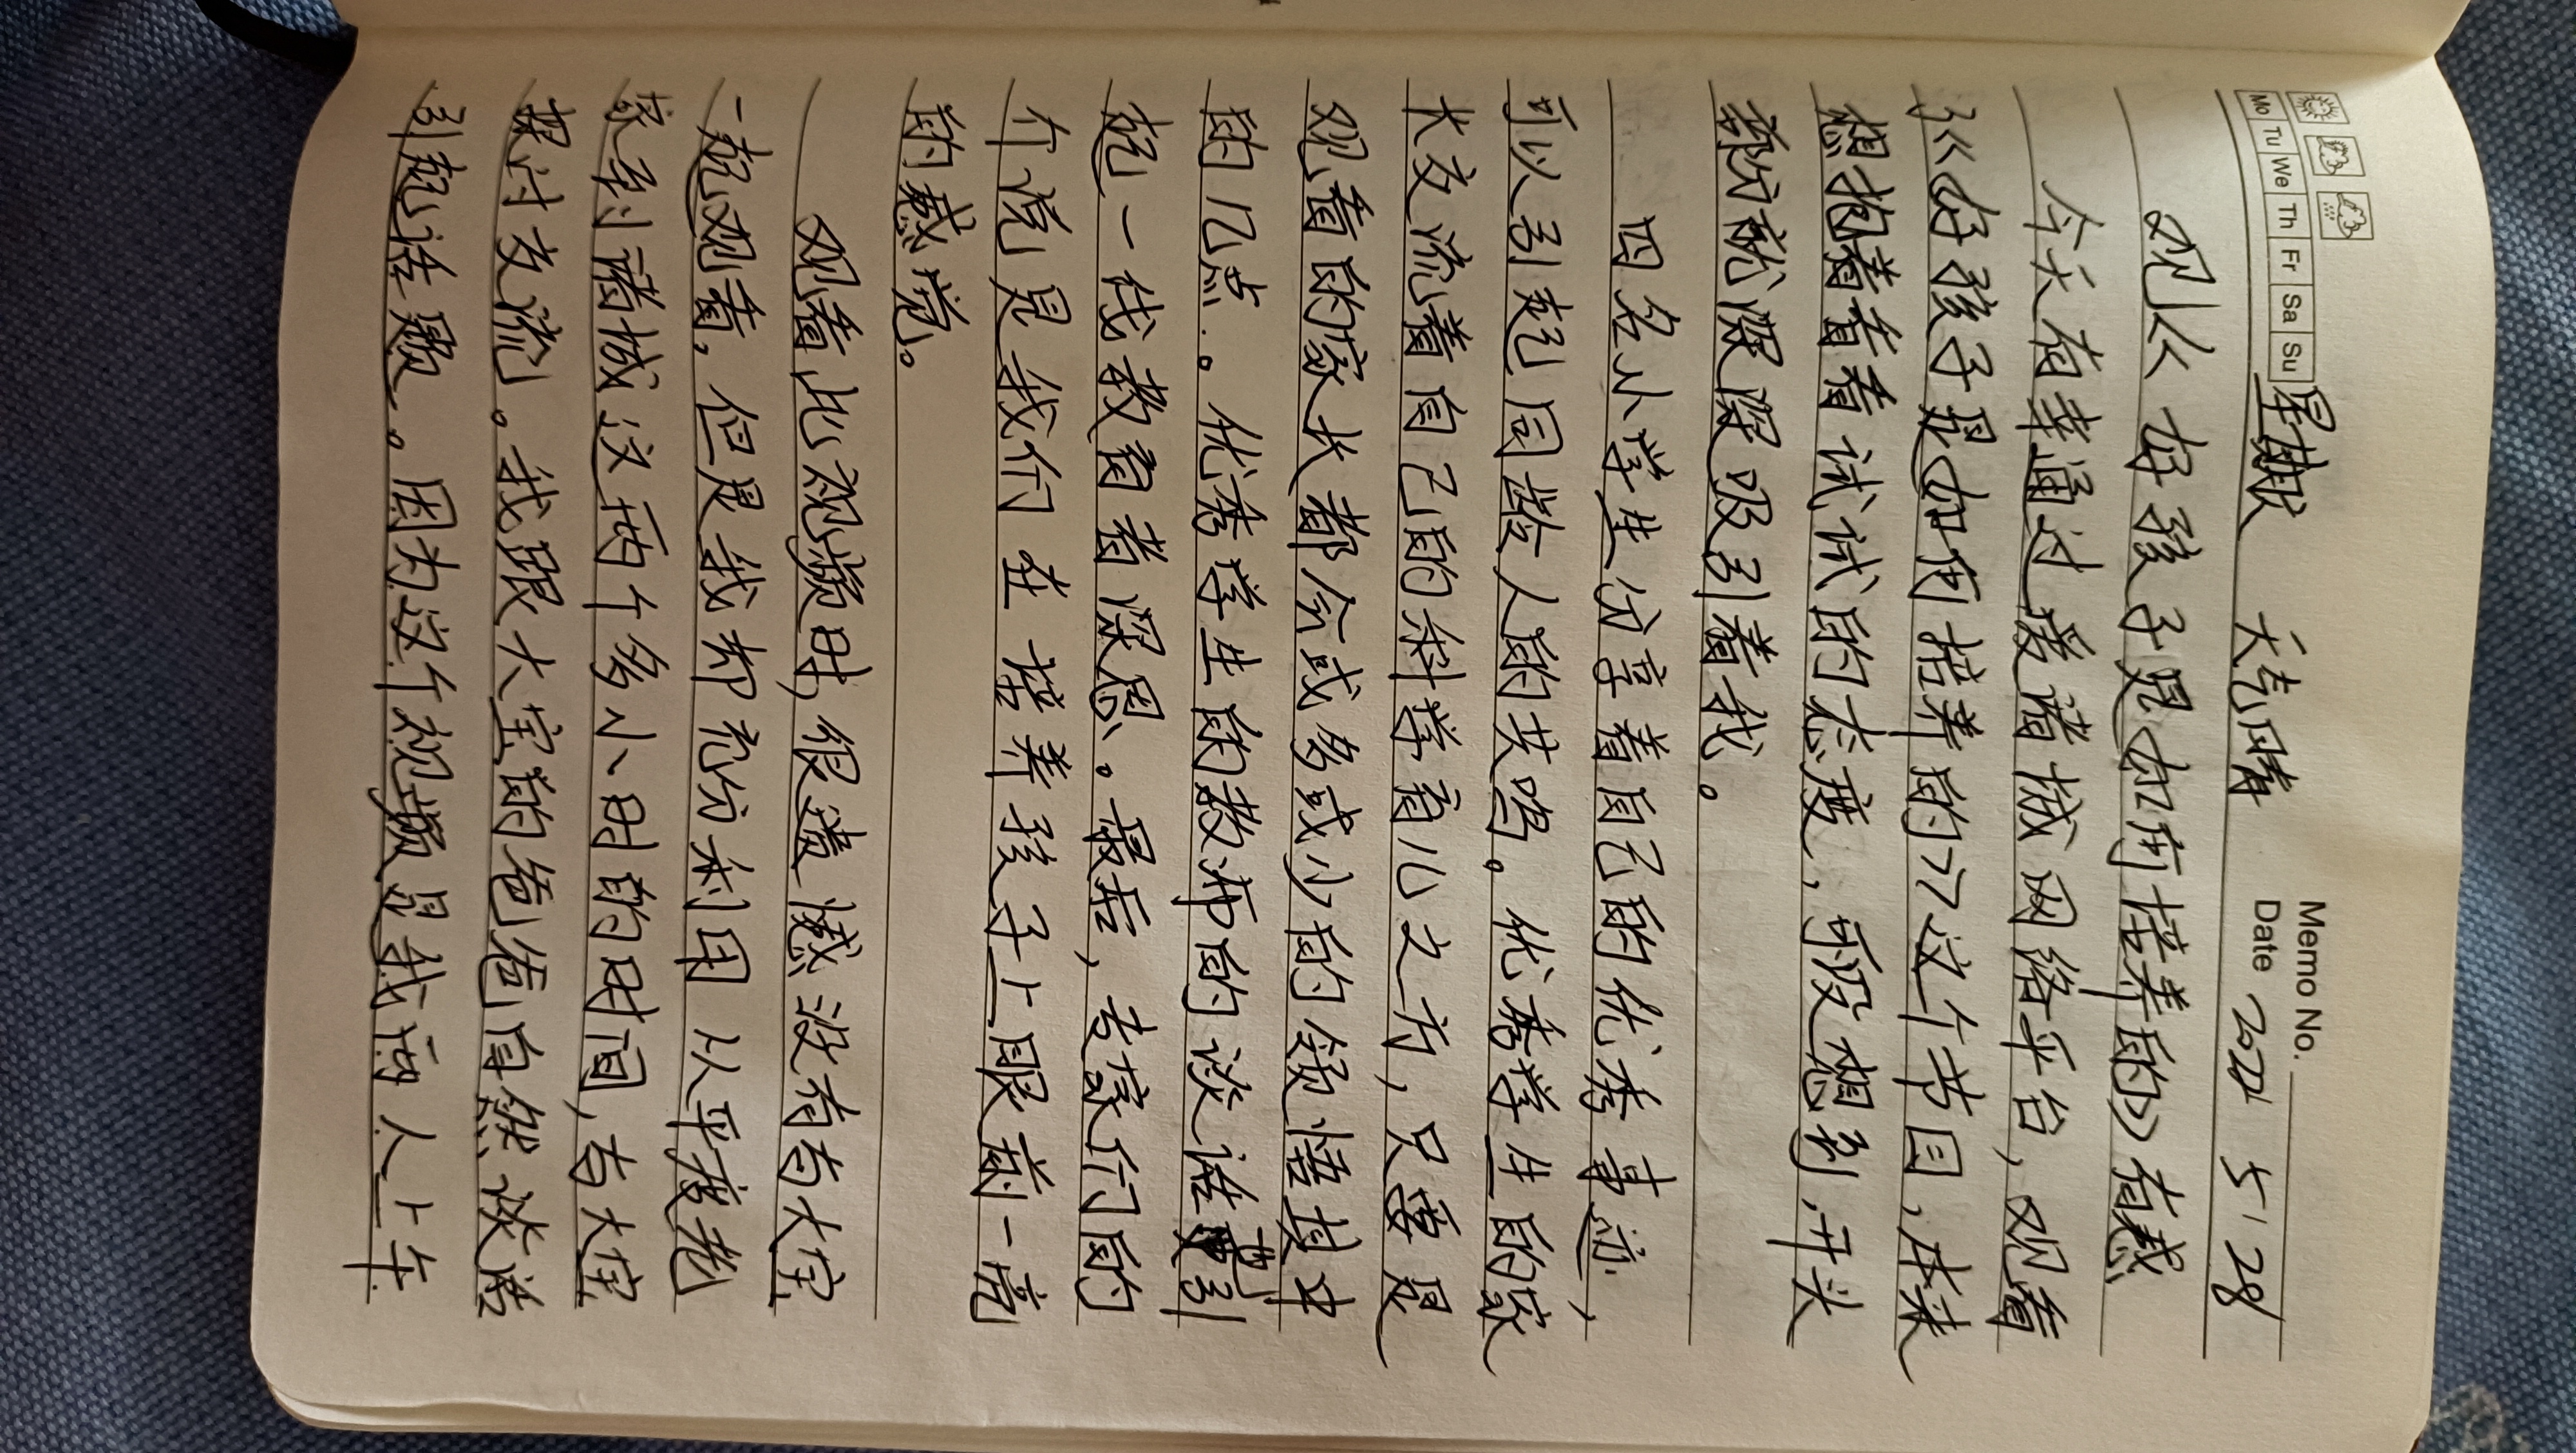 Memo No.
Mo Tu We Th Fr Sa Su 星期 天气晴 Date 2022 5 28
观《好孩子是如何培养的》有感
今天有幸通过爱诸城网络平台，观看
了《好孩子是如何培养的》这个节目，本来
想抱着看看试试的态度，可没想到，开头
部分就深深吸引着我。
四名小学生分享着自己的优秀事迹，
可以引起同龄人的共鸣。优秀学生的家
长交流着自己的科学育儿之方，只要是
观看的家长都会或多或少的领悟其中
的几点。优秀学生的教师的谈话更引
起一线教育者深思。最后，专家们的
介绍是我们在培养孩子上眼前一亮
的感觉。
观看此视频时，很遗憾没有与大宝
一起观看，但是我却充分利用从平度老
家到诸城这两个多小时的时间，与大宝
探讨交流。我跟大宝的爸爸自然谈话
引起话题。因为这个视频是我两人上午